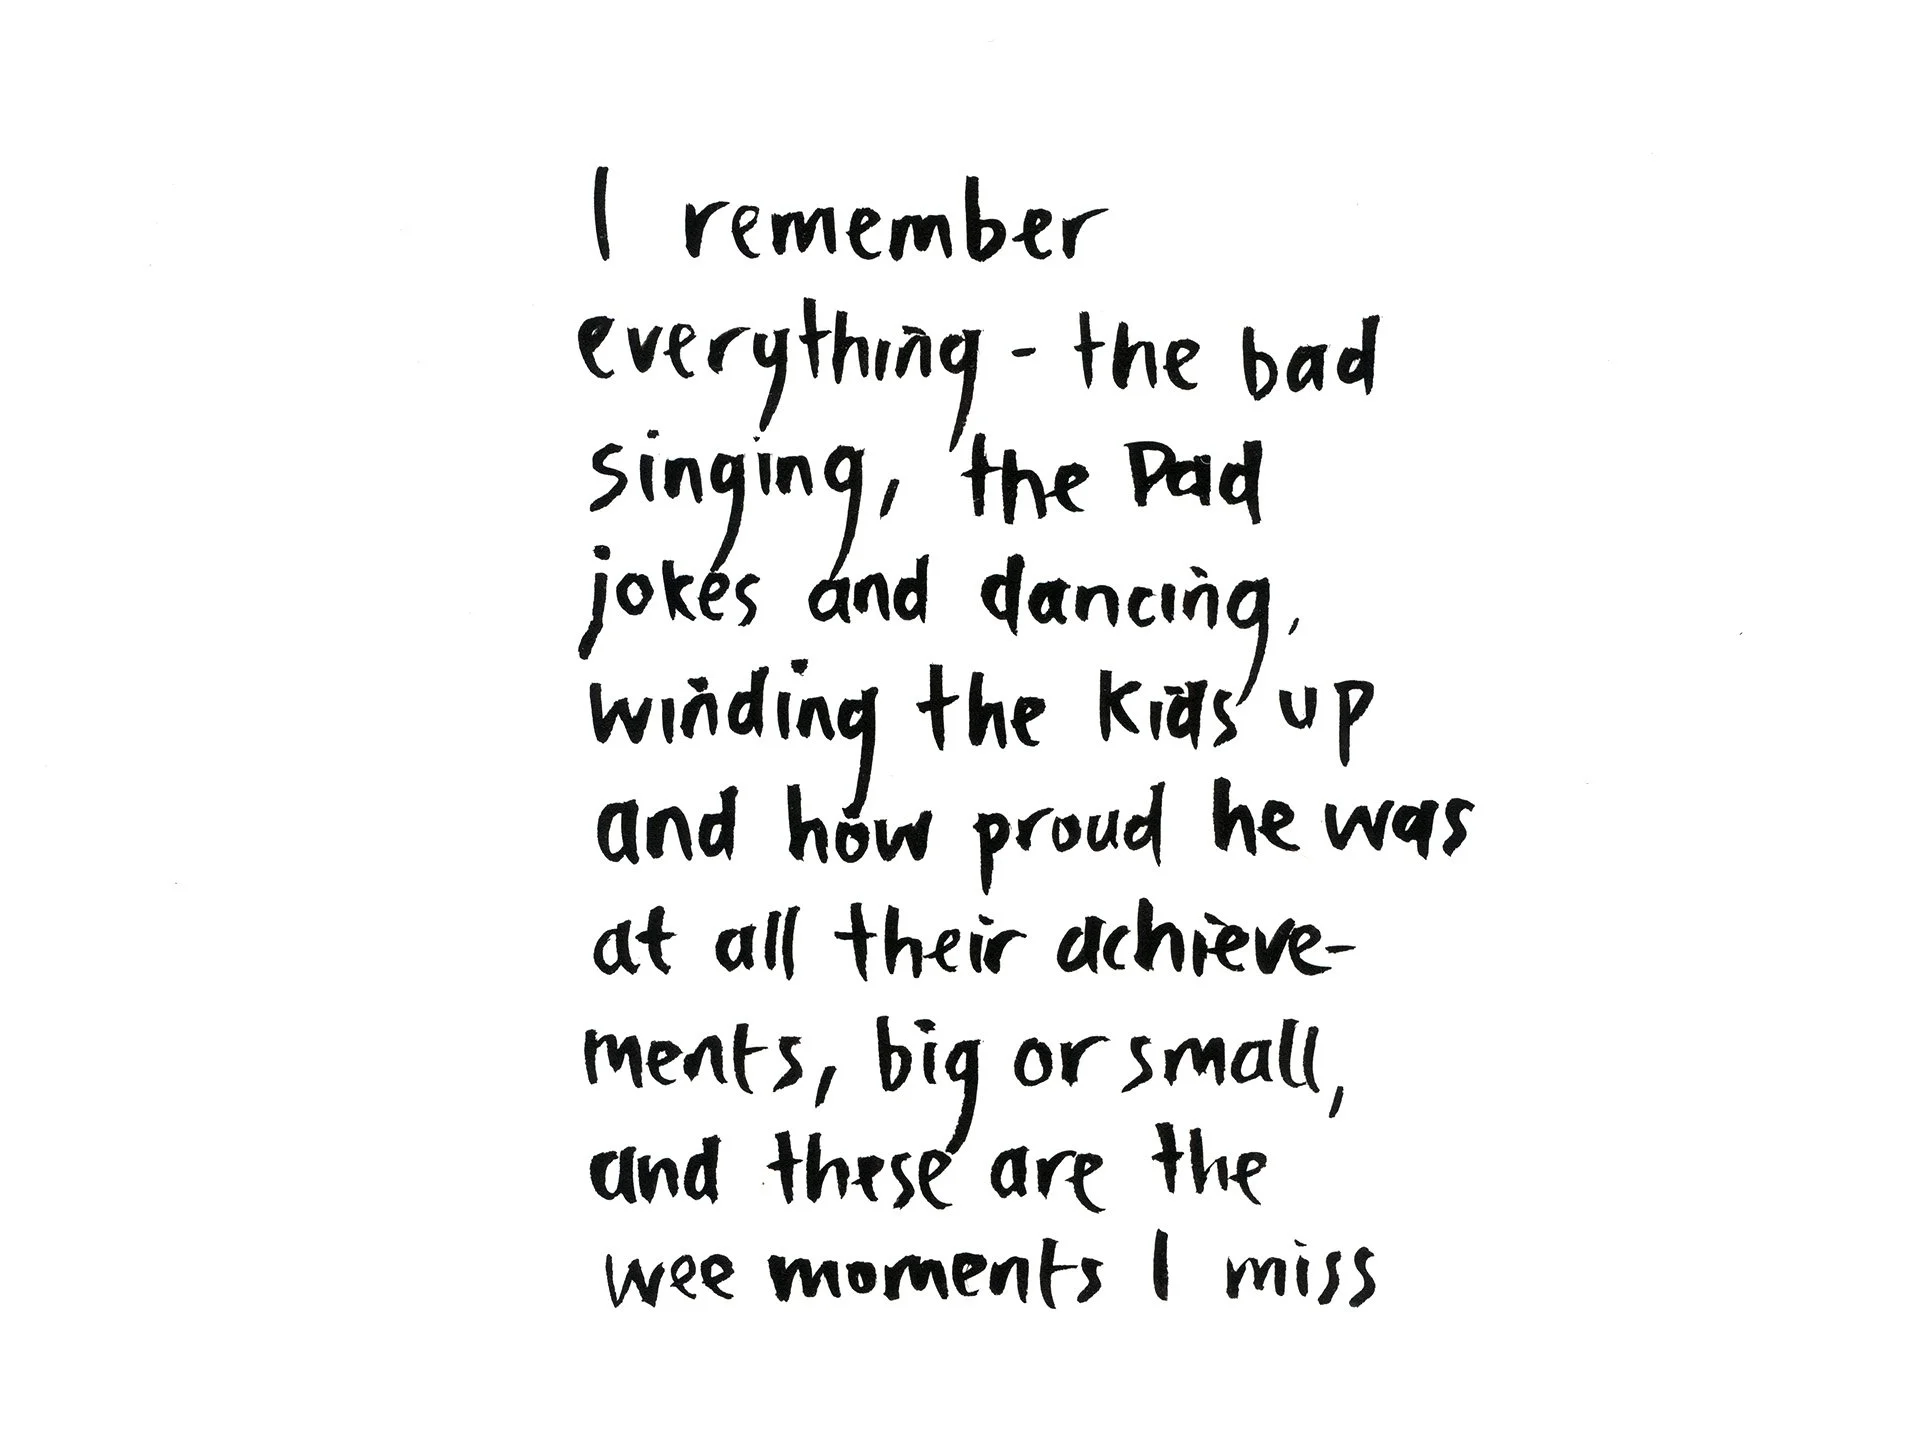 I remember
everything - the bad
singing, the Dad
jokes and dancing,
winding the kids up
and how proud he was
at all their achieve-
ments, big or small,
and these are the
wee moments I miss